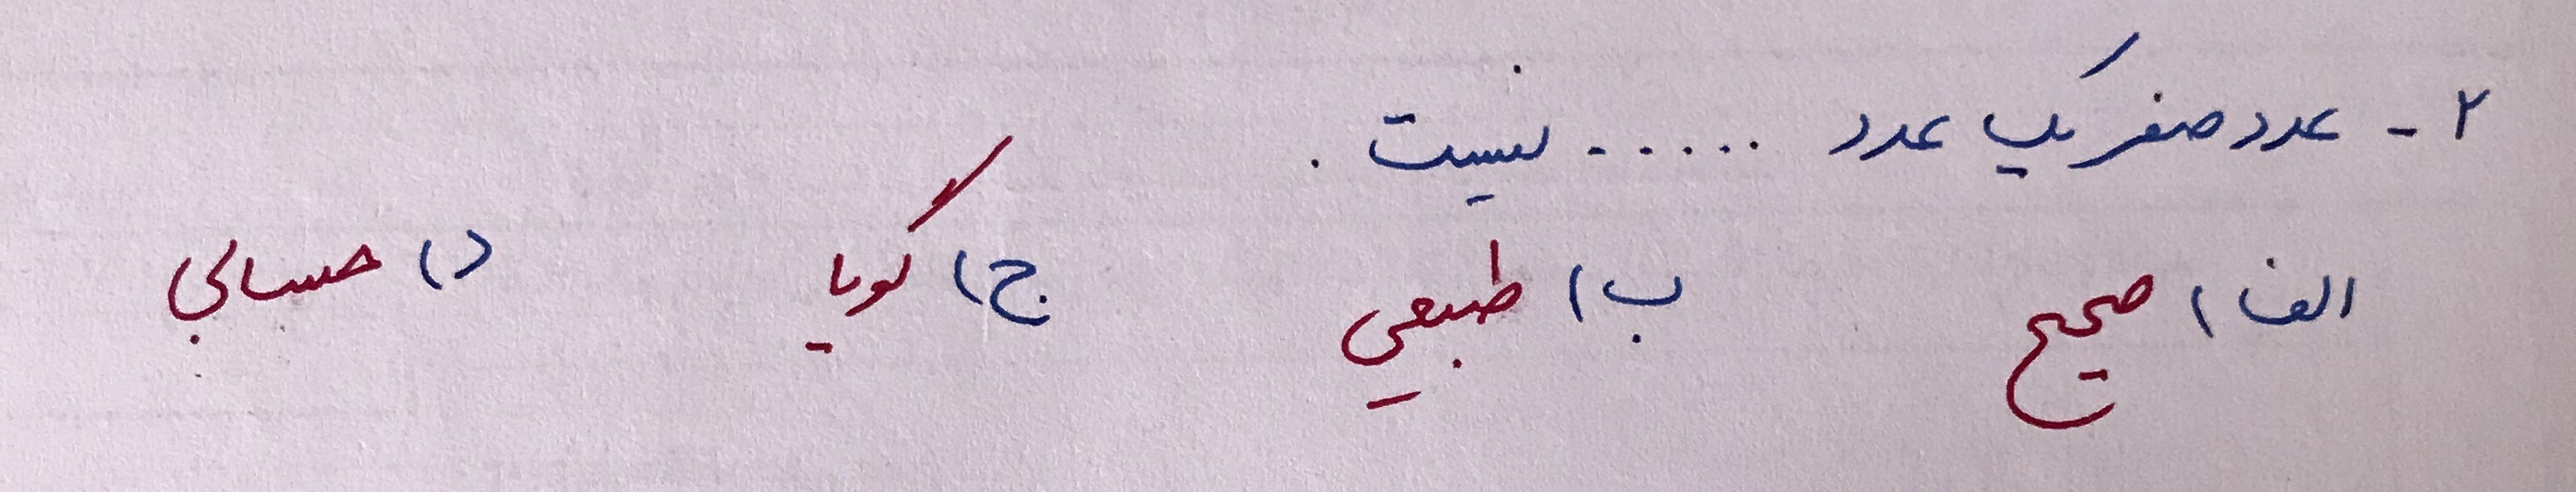 ۲- عدد صفر یک عدد ...... نیست.
الف) صحیح ب) طبیعی ج) گویا د) حسابی